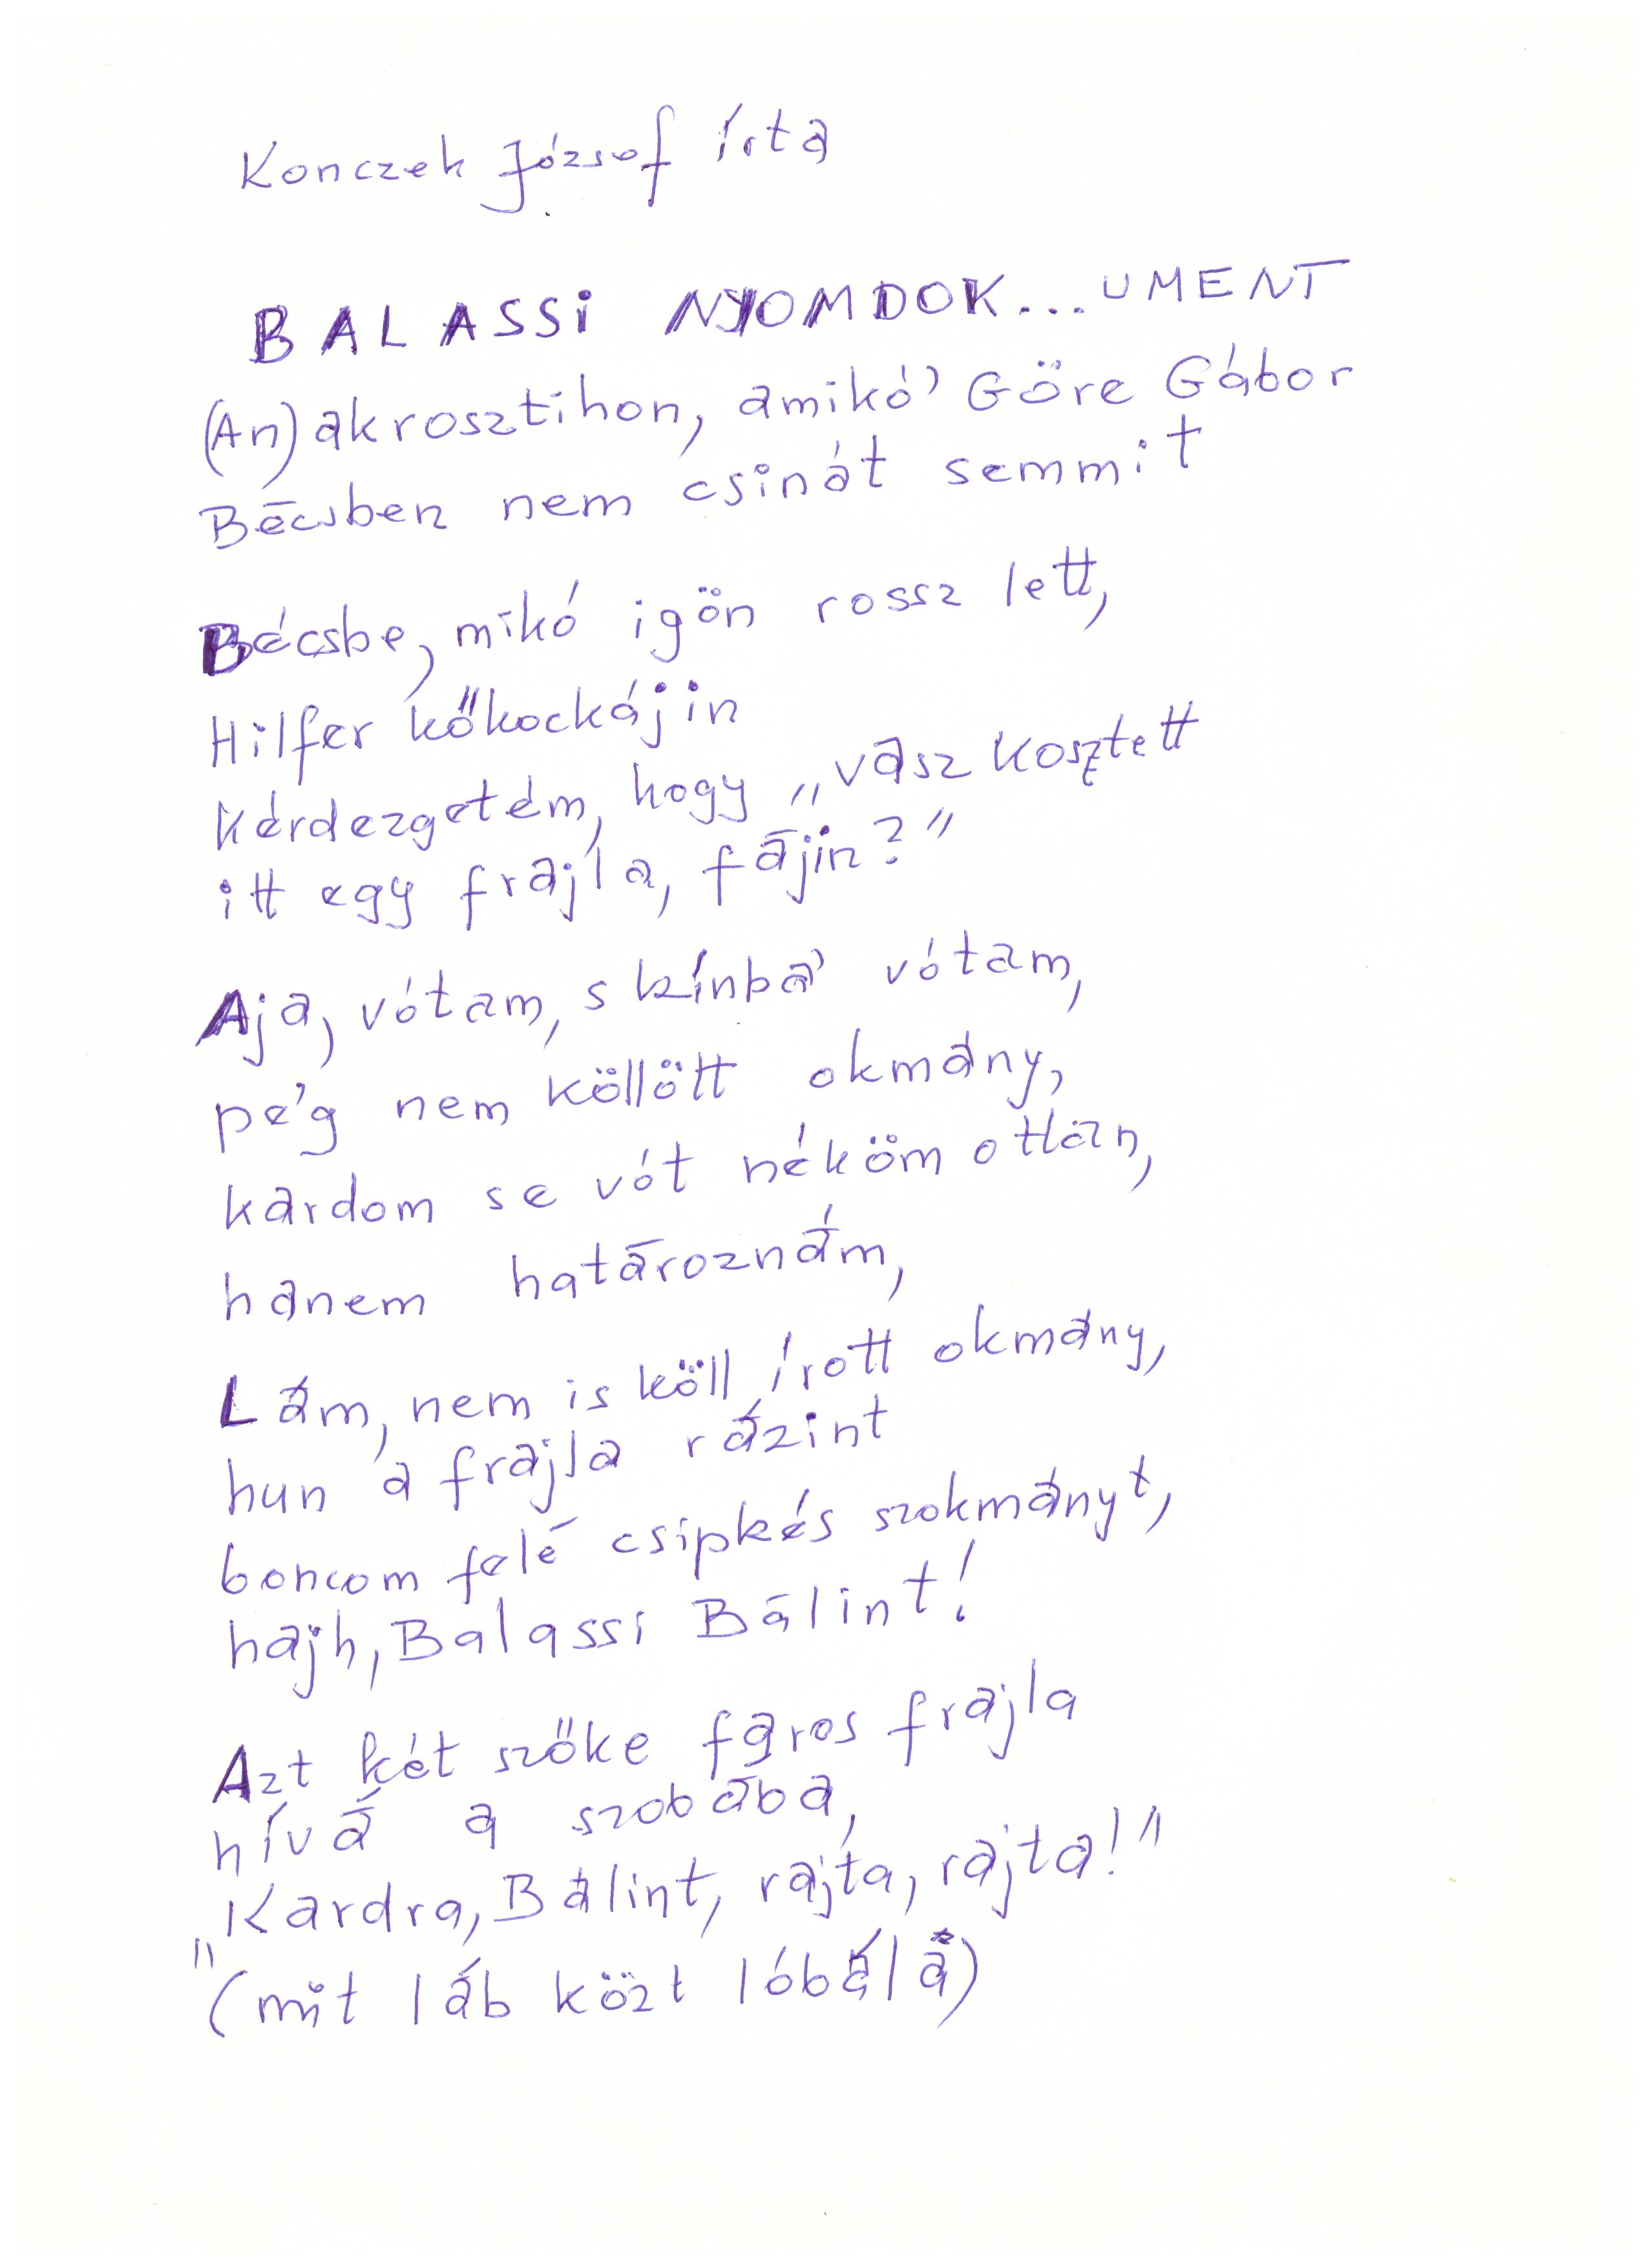 Konczek József írta
BALASSi NYOMDOK...UMENT
(An) akrosztihon, amikó' Göre Gábor
Bécsben nem csinát semmit
Bécsbe, mikó igön rossz lett,
Hilfer kőkockájin
kérdezgetém, hogy „vasz kosztett
itt egy frajla, fájin?"
Aja, vótam, s kínba' vótam,
pe'g nem köllött okmány,
kardom se vót néköm ottan,
hanem határoznám,
Lám, nem is köll írott okmány,
hun a frajla rázint
boncom felé csipkés szokmányt,
hajh, Balassi Bálint!
Azt két szőke faros frajla
hívá a szobába,
„Kardra, Bálint, rajta, rajta!"
(mit láb közt lóbála)